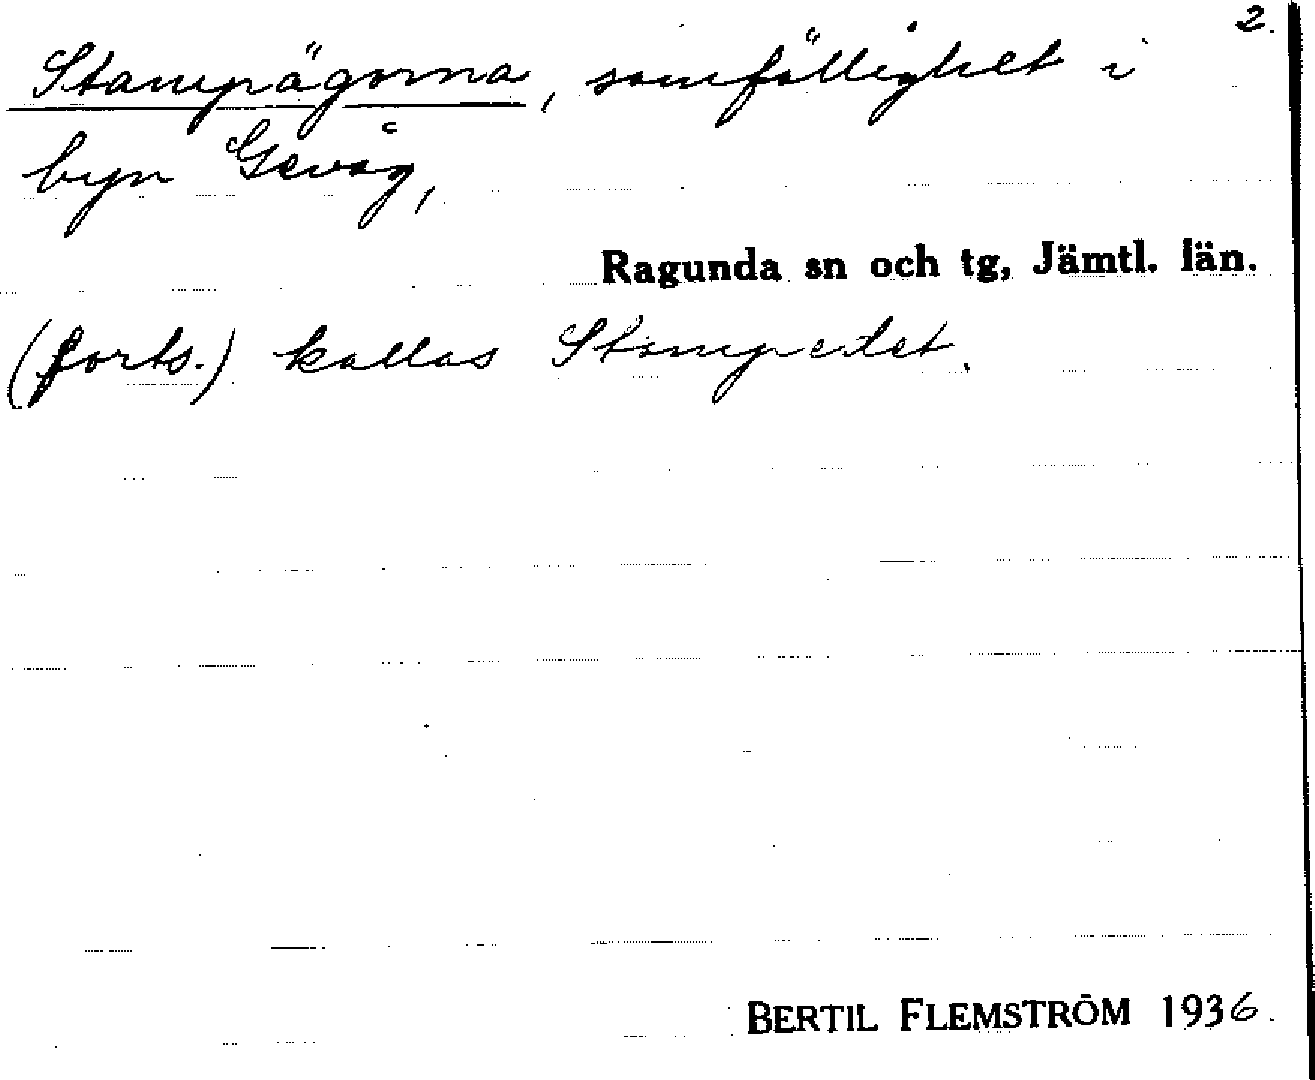 2.
Stampägorna, samfällighet i
byn Gevåg,
Ragunda sn och tg, Jämtl. län.
(forts.) kallas
BERTIL FLEMSTRÖM 1936